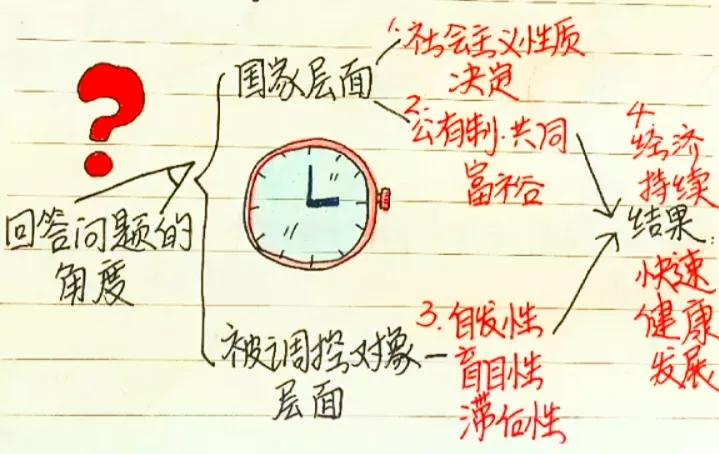 ?
回答问题的
角度
国家层面
1.社会主义性质
决定
2.公有制.共同
富裕
被调控对象
层面
3.自发性
盲目性
滞后性
4.
经济
持续
结果:
快速
健康
发展